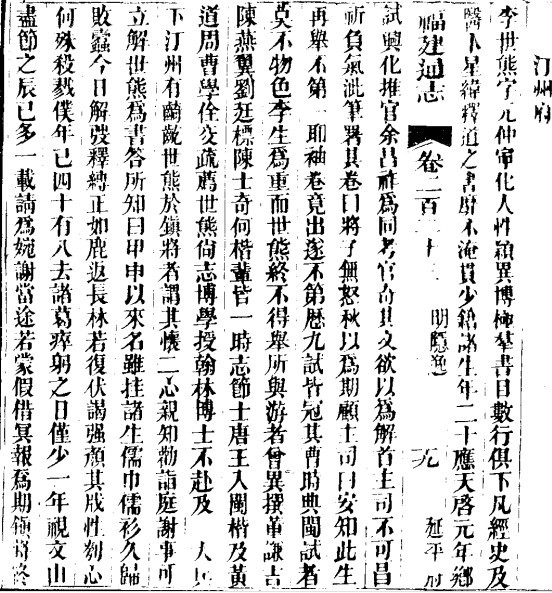 汀州府
李世熊字元仲寧化人性穎異博極羣書目數行俱下凡經史及
醫卜星緯釋道之書靡不淹貫少籍諸生年二十應天啓元年鄉
福建通志
卷二百二十
明隱逸
九
延平府
試興化推官余昌祚為同考官奇其文欲以為解首主司不可昌
祚負氣泚筆署其卷曰將子無怒秋以為期顧主司曰安知此生
再舉不第一耶袖卷竟出遂不第歷九試皆冠其曹時典閩試者
莫不物色李生為重而世熊終不得舉所與游者曾異撰董謙吉
陳燕翼劉廷標陳士奇何楷輩皆一時志節士唐王入閩楷及黃
道周曹學佺交疏薦世熊尚志博學授翰林博士不赴及 大兵
下汀州有齮齕世熊於鎮將者謂其懷二心親知勸詣庭謝事可
立解世熊為書答所知曰甲申以來名雖挂諸生儒巾儒衫久歸
敗蠧今日解發釋縛正如鹿返長林若復伏謁强顏其戕性刳心
何殊殺戮僕年已四十有八去諸葛瘁躬之日僅少一年視文山
盡節之辰已多一載請為婉謝當途若蒙假借冥報為期領